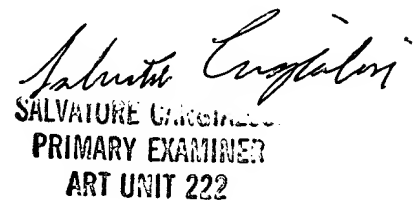 Salvatore Cangialosi
SALVATORE CANGIALOSI
PRIMARY EXAMINER
ART UNIT 222